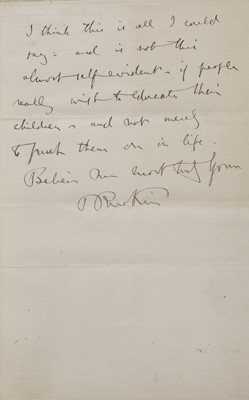 I think this is all I could
say: and is not this
almost self evident - if people
really wish to educate their
children - and not merely
to push them on in life.
Believe me most truly Yours
J Ruskin